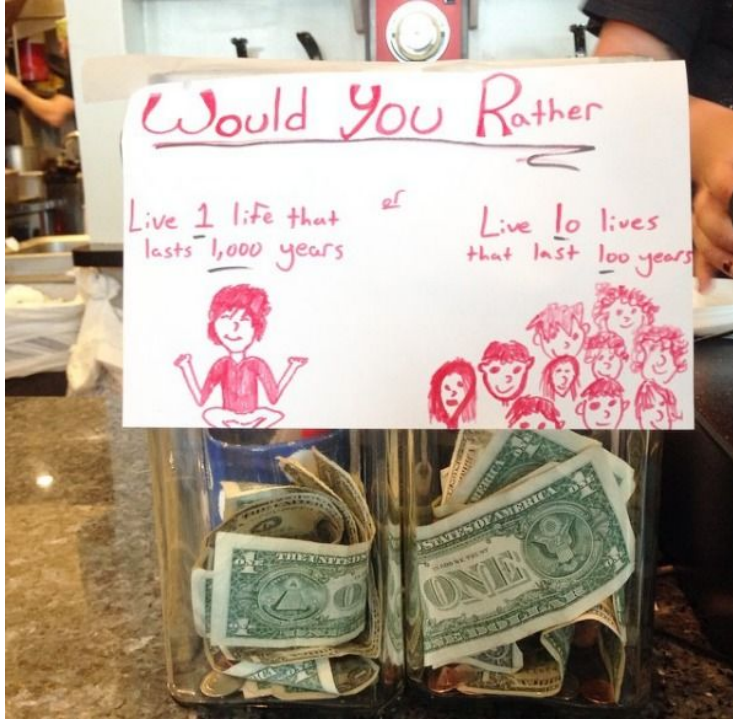 Would You Rather
Live 1 life that
lasts 1,000 years
or
Live 10 lives
that last 100 years
1
THE UNITED
ONE
O
STATES OF AMERICA
1
ONE
ONE DOLLAR